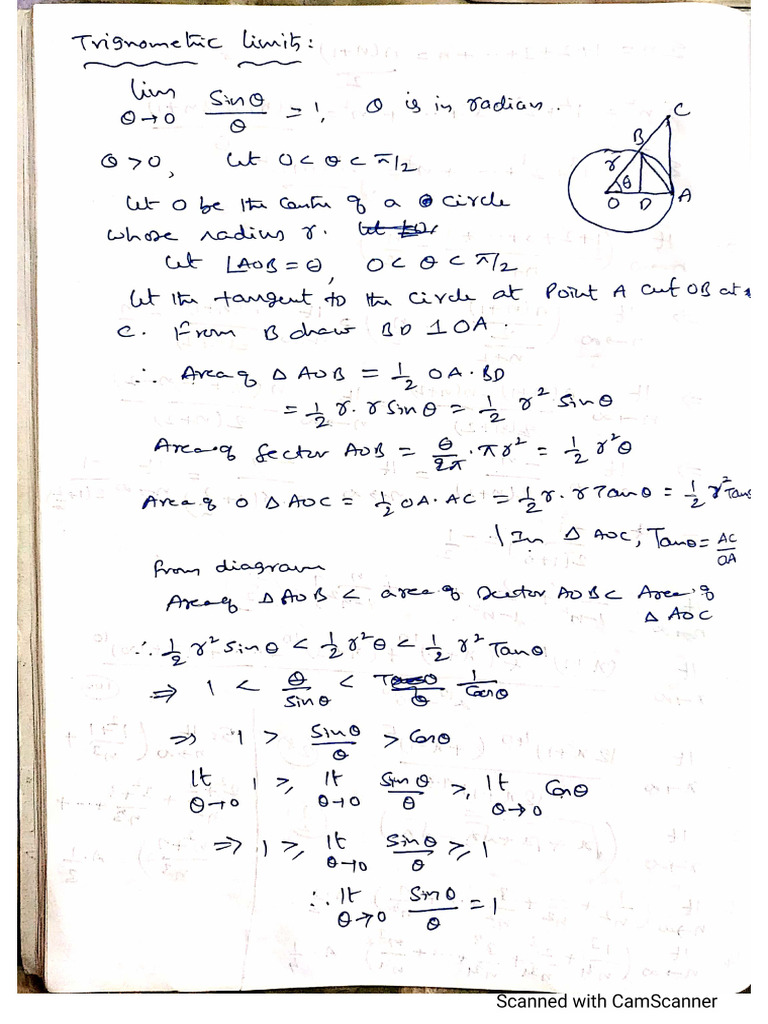 Trignometric limits:
lim θ→0 Sinθ/θ = 1, θ is in radian.
θ > 0, let 0 < θ < π/2
C
B
r
θ
O D A
let O be the centre of a circle
whose radius r.
let ∠AOB = θ, 0 < θ < π/2
let the tangent to the circle at Point A cut OB at
C. From B draw BD ⊥ OA.
∴ Area of Δ AOB = 1/2 OA·BD
= 1/2 r. r Sinθ = 1/2 r² Sinθ
Area of Sector AOB = θ/2π · πr² = 1/2 r²θ
Area of Δ AOC = 1/2 OA·AC = 1/2 r. r Tanθ = 1/2 r² Tanθ
In Δ AOC, Tanθ = AC/OA
from diagram
Area of Δ AOB < area of Sector AOB < Area of
Δ AOC
∴ 1/2 r² Sinθ < 1/2 r²θ < 1/2 r² Tanθ
⇒ 1 < θ/Sinθ < 1/Cosθ
⇒ 1 > Sinθ/θ > Cosθ
lt θ→0 1 ≥ lt θ→0 Sinθ/θ ≥ lt θ→0 Cosθ
⇒ 1 ≥ lt θ→0 Sinθ/θ ≥ 1
∴ lt θ→0 Sinθ/θ = 1
Scanned with CamScanner